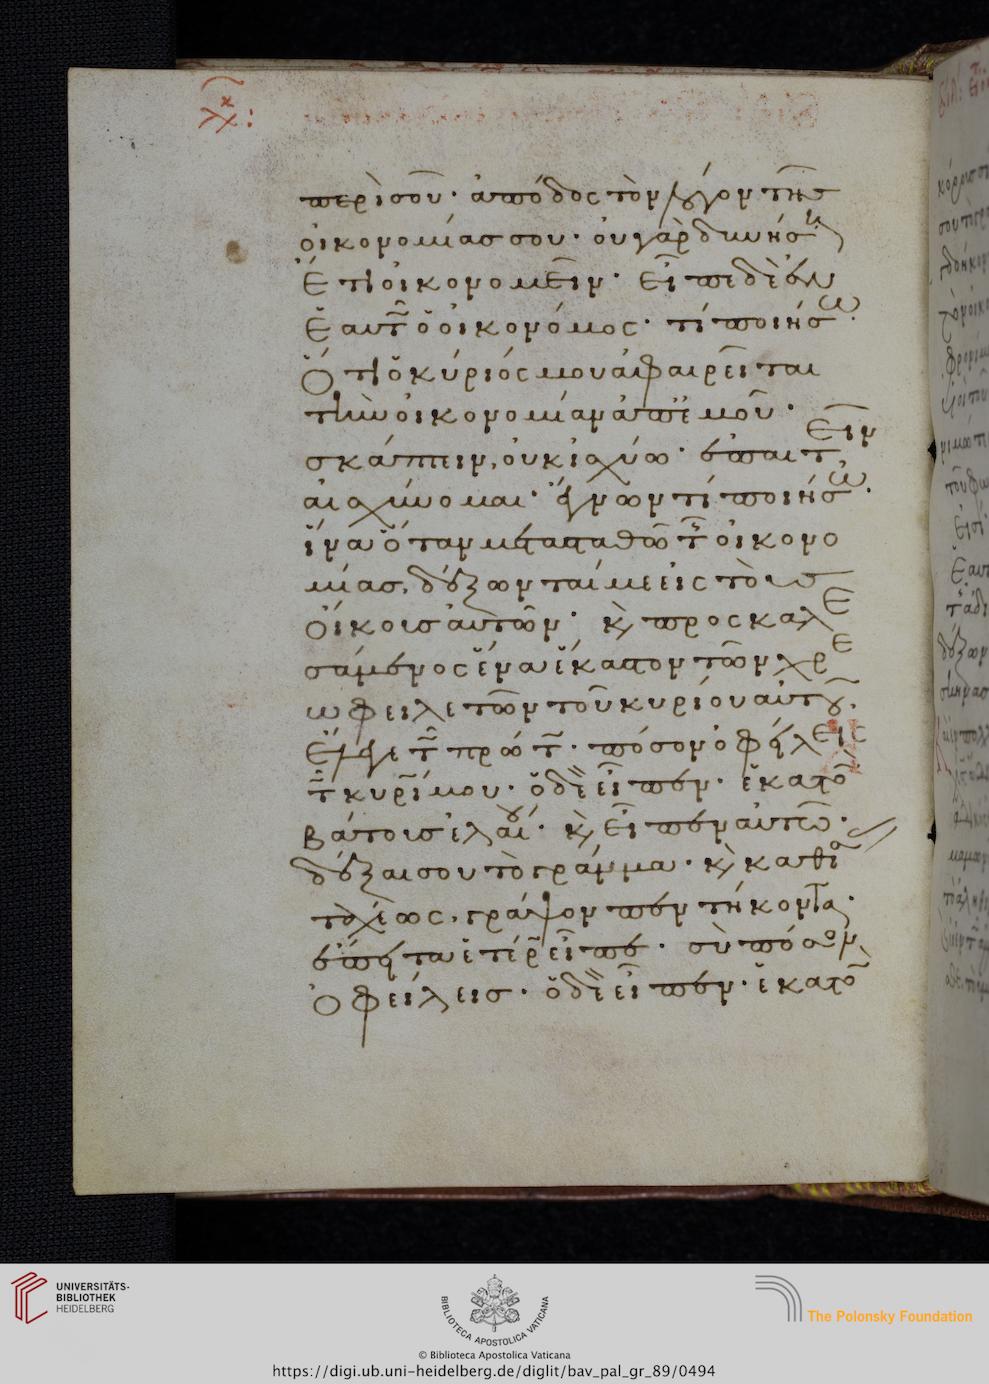 περὶ σοῦ· ἀπόδος τὸν λόγον τῆς
οἰκονομίας σου· οὐ γὰρ δυνήσῃ
ἔτι οἰκονομεῖν· εἶπε δὲ ἐν
ἑαυτῷ ὁ οἰκονόμος· τί ποιήσω·
ὅτι ὁ κύριός μου ἀφαιρεῖται
τὴν οἰκονομίαν ἀπ' ἐμοῦ·
σκάπτειν, οὐκ ἰσχύω· ἐπαιτεῖν
αἰσχύνομαι· ἔγνων τί ποιήσω·
ἵνα ὅταν μετασταθῶ τῆς οἰκονο
μίας, δέξωνταί με εἰς τοὺς
οἴκους αὐτῶν· κ προσκαλε
σάμενος ἕνα ἕκαστον τῶν χρε
ωφειλετῶν τοῦ κυρίου αὐτοῦ,
ἔλεγε τῷ πρώτῳ· πόσον ὀφείλεις
τῷ κυρίῳ μου· ὁ δὲ εἶπεν· ἑκατὸν
βάτους ἐλαίου· κ εἶπεν αὐτῷ·
δέξαι σου τὸ γράμμα· κ καθίσας
ταχέως, γράψον πεντήκοντα·
ἔπειτα ἑτέρῳ εἶπε· σὺ πόσον
ὀφείλεις· ὁ δὲ εἶπεν· ἑκατὸν
UNIVERSITÄTS-
BIBLIOTHEK
HEIDELBERG
BIBLIOTECA APOSTOLICA VATICANA
The Polonsky Foundation
© Biblioteca Apostolica Vaticana
https://digi.ub.uni-heidelberg.de/diglit/bav_pal_gr_89/0494